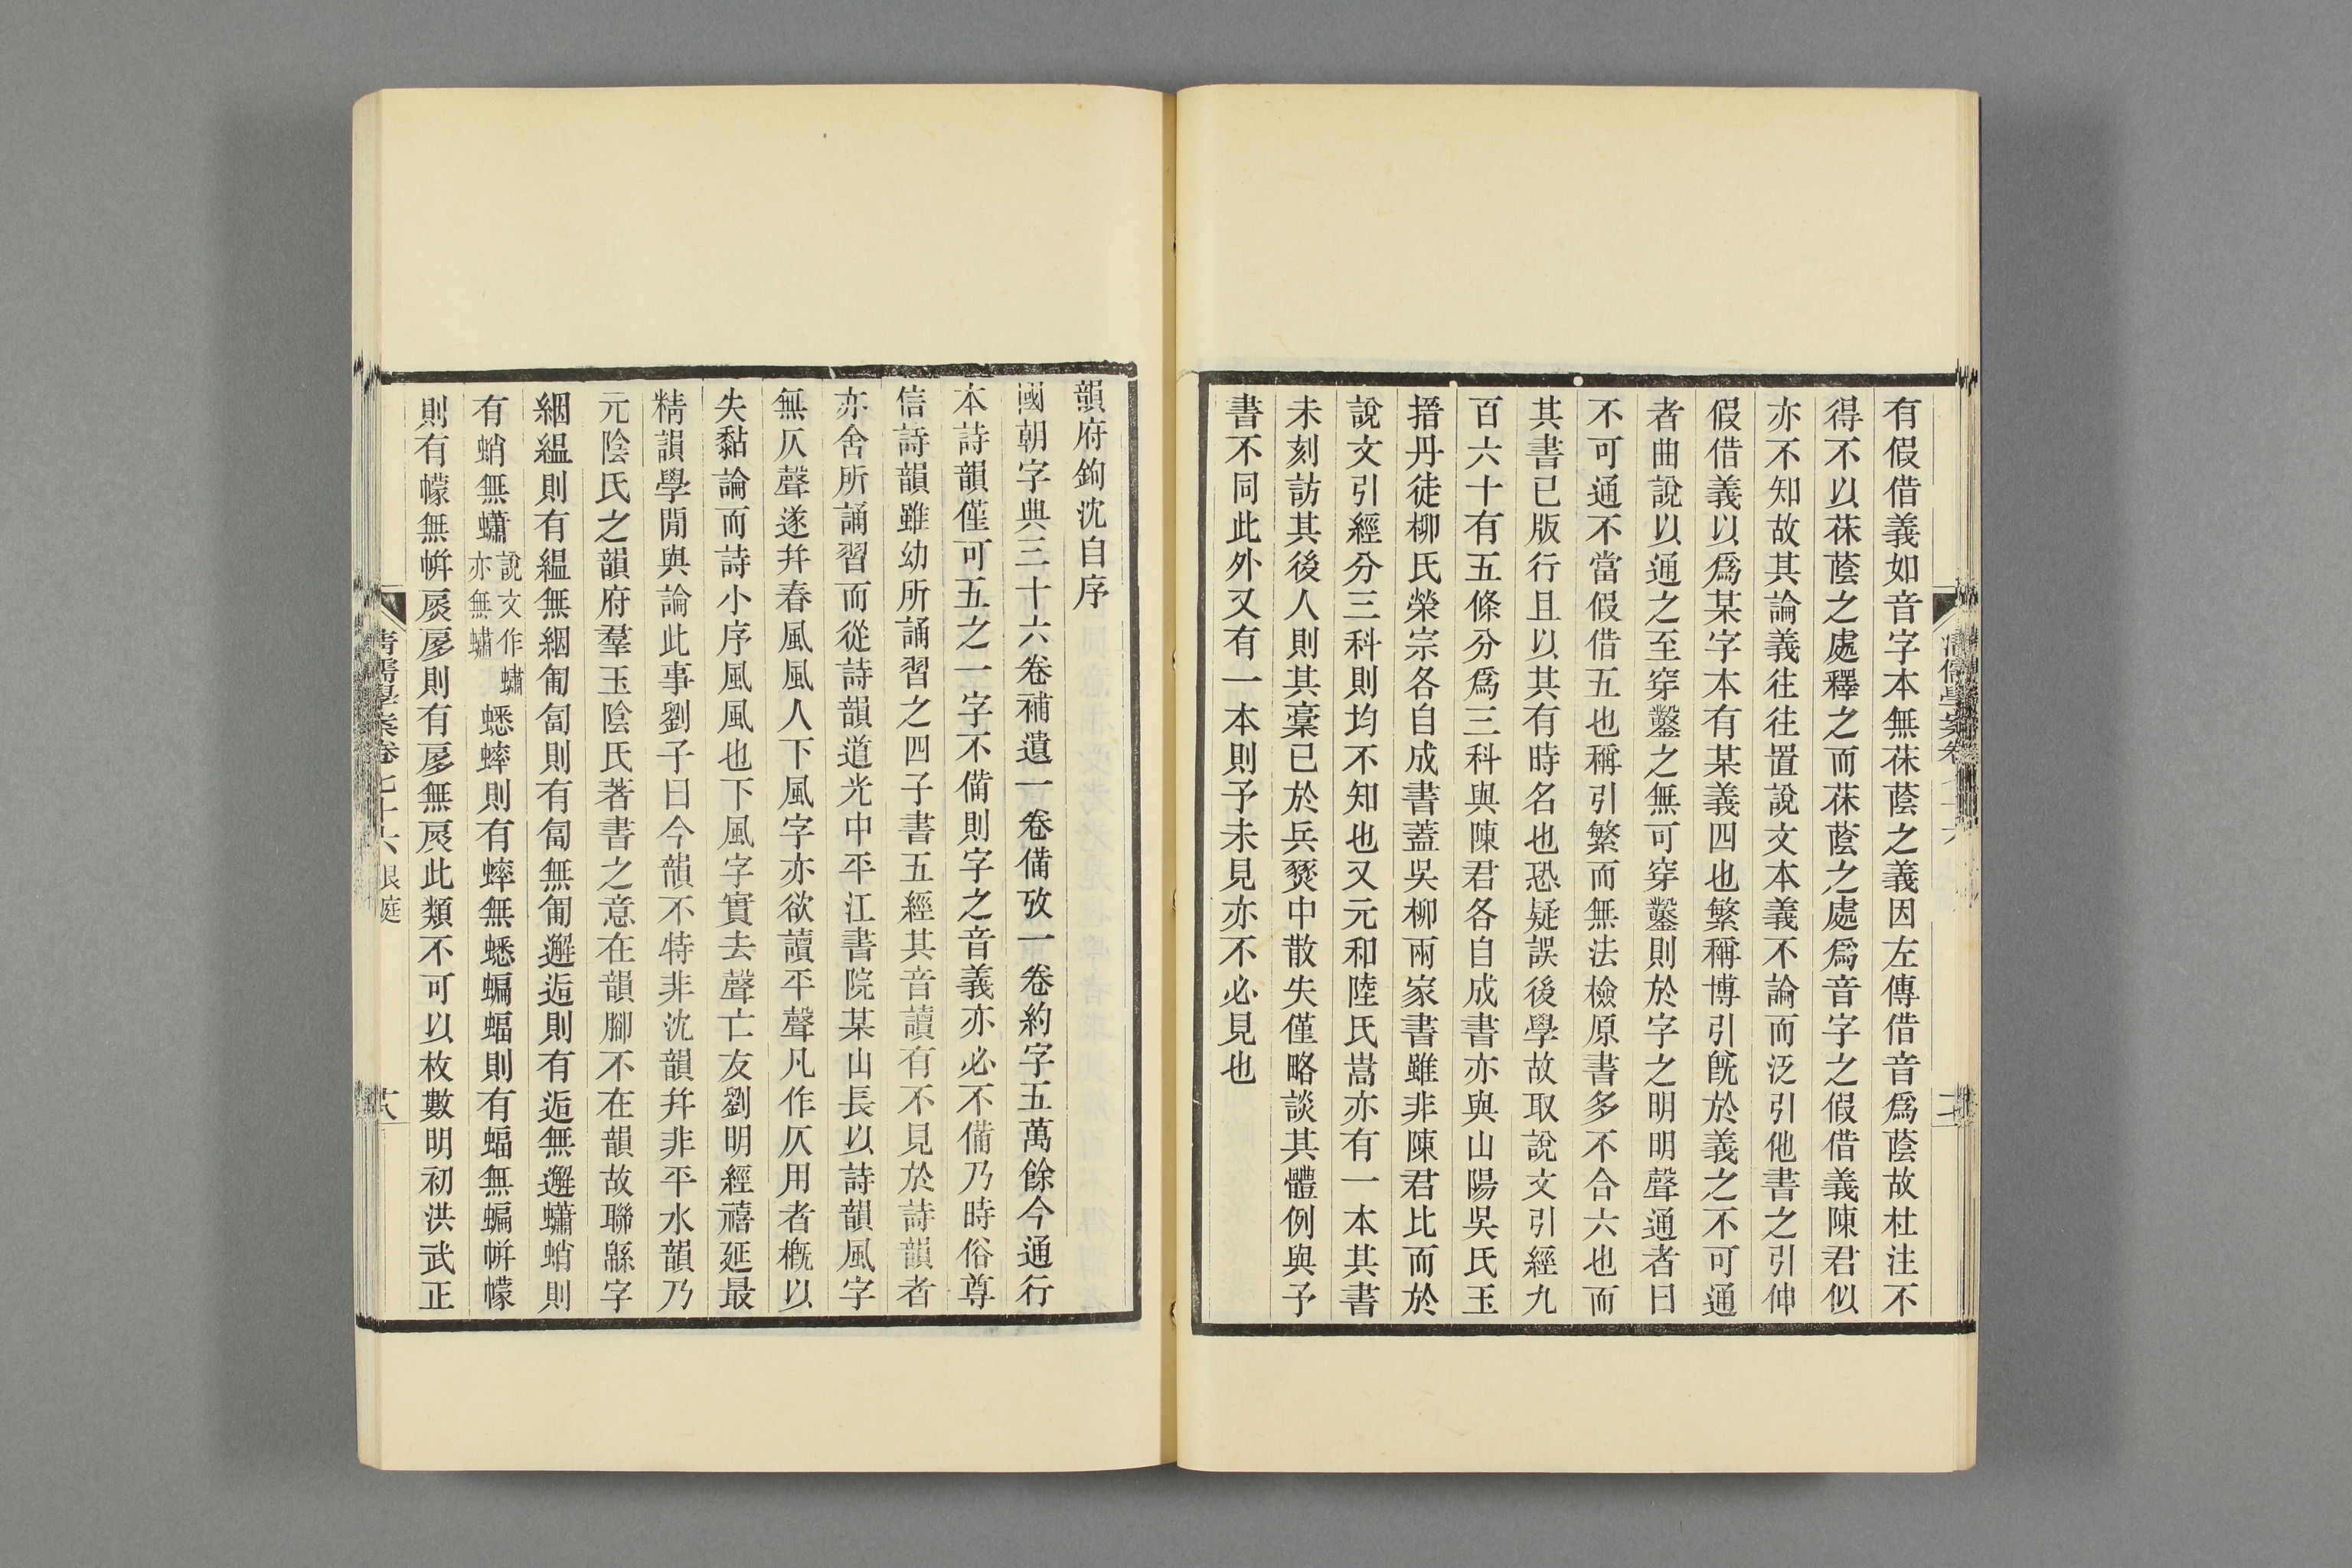 有假借義如音字本無茠蔭之義因左傳借音爲蔭故杜注不
得不以茠蔭之處釋之而茠蔭之處爲音字之假借義陳君似
亦不知故其論義往往置說文本義不論而泛引他書之引伸
假借義以爲某字本有某義四也繁稱博引旣於義之不可通
者曲說以通之至穿鑿之無可穿鑿則於字之明明聲通者曰
不可通不當假借五也稱引繁而無法檢原書多不合六也而
其書已版行且以其有時名也恐疑誤後學故取說文引經九
百六十有五條分爲三科與陳君各自成書亦與山陽吳氏玉
搢丹徒柳氏榮宗各自成書蓋吳柳兩家書雖非陳君比而於
說文引經分三科則均不知也又元和陸氏嵩亦有一本其書
未刻訪其後人則其稾已於兵燹中散失僅略談其體例與予
書不同此外又有一本則予未見亦不必見也
韻府鉤沈自序
國朝字典三十六卷補遺一卷備攷一卷約字五萬餘今通行
本詩韻僅可五之一字不備則字之音義亦必不備乃時俗尊
信詩韻雖幼所誦習之四子書五經其音讀有不見於詩韻者
亦舍所誦習而從詩韻道光中平江書院某山長以詩韻風字
無仄聲遂幷春風風人下風字亦欲讀平聲凡作仄用者槪以
失黏論而詩小序風風也下風字實去聲亡友劉明經禧延最
精韻學閒與論此事劉子曰今韻不特非沈韻幷非平水韻乃
元陰氏之韻府羣玉陰氏著書之意在韻腳不在韻故聯緜字
絪縕則有縕無絪匍匐則有匐無匍邂逅則有逅無邂蠨蛸則
有蛸無蠨說文作蟰亦無蟰蟋蟀則有蟀無蟋蝙蝠則有蝠無蝙帡幪
則有幪無帡扊扅則有扅無扊此類不可以枚數明初洪武正
清儒學案卷七十六 艮庭